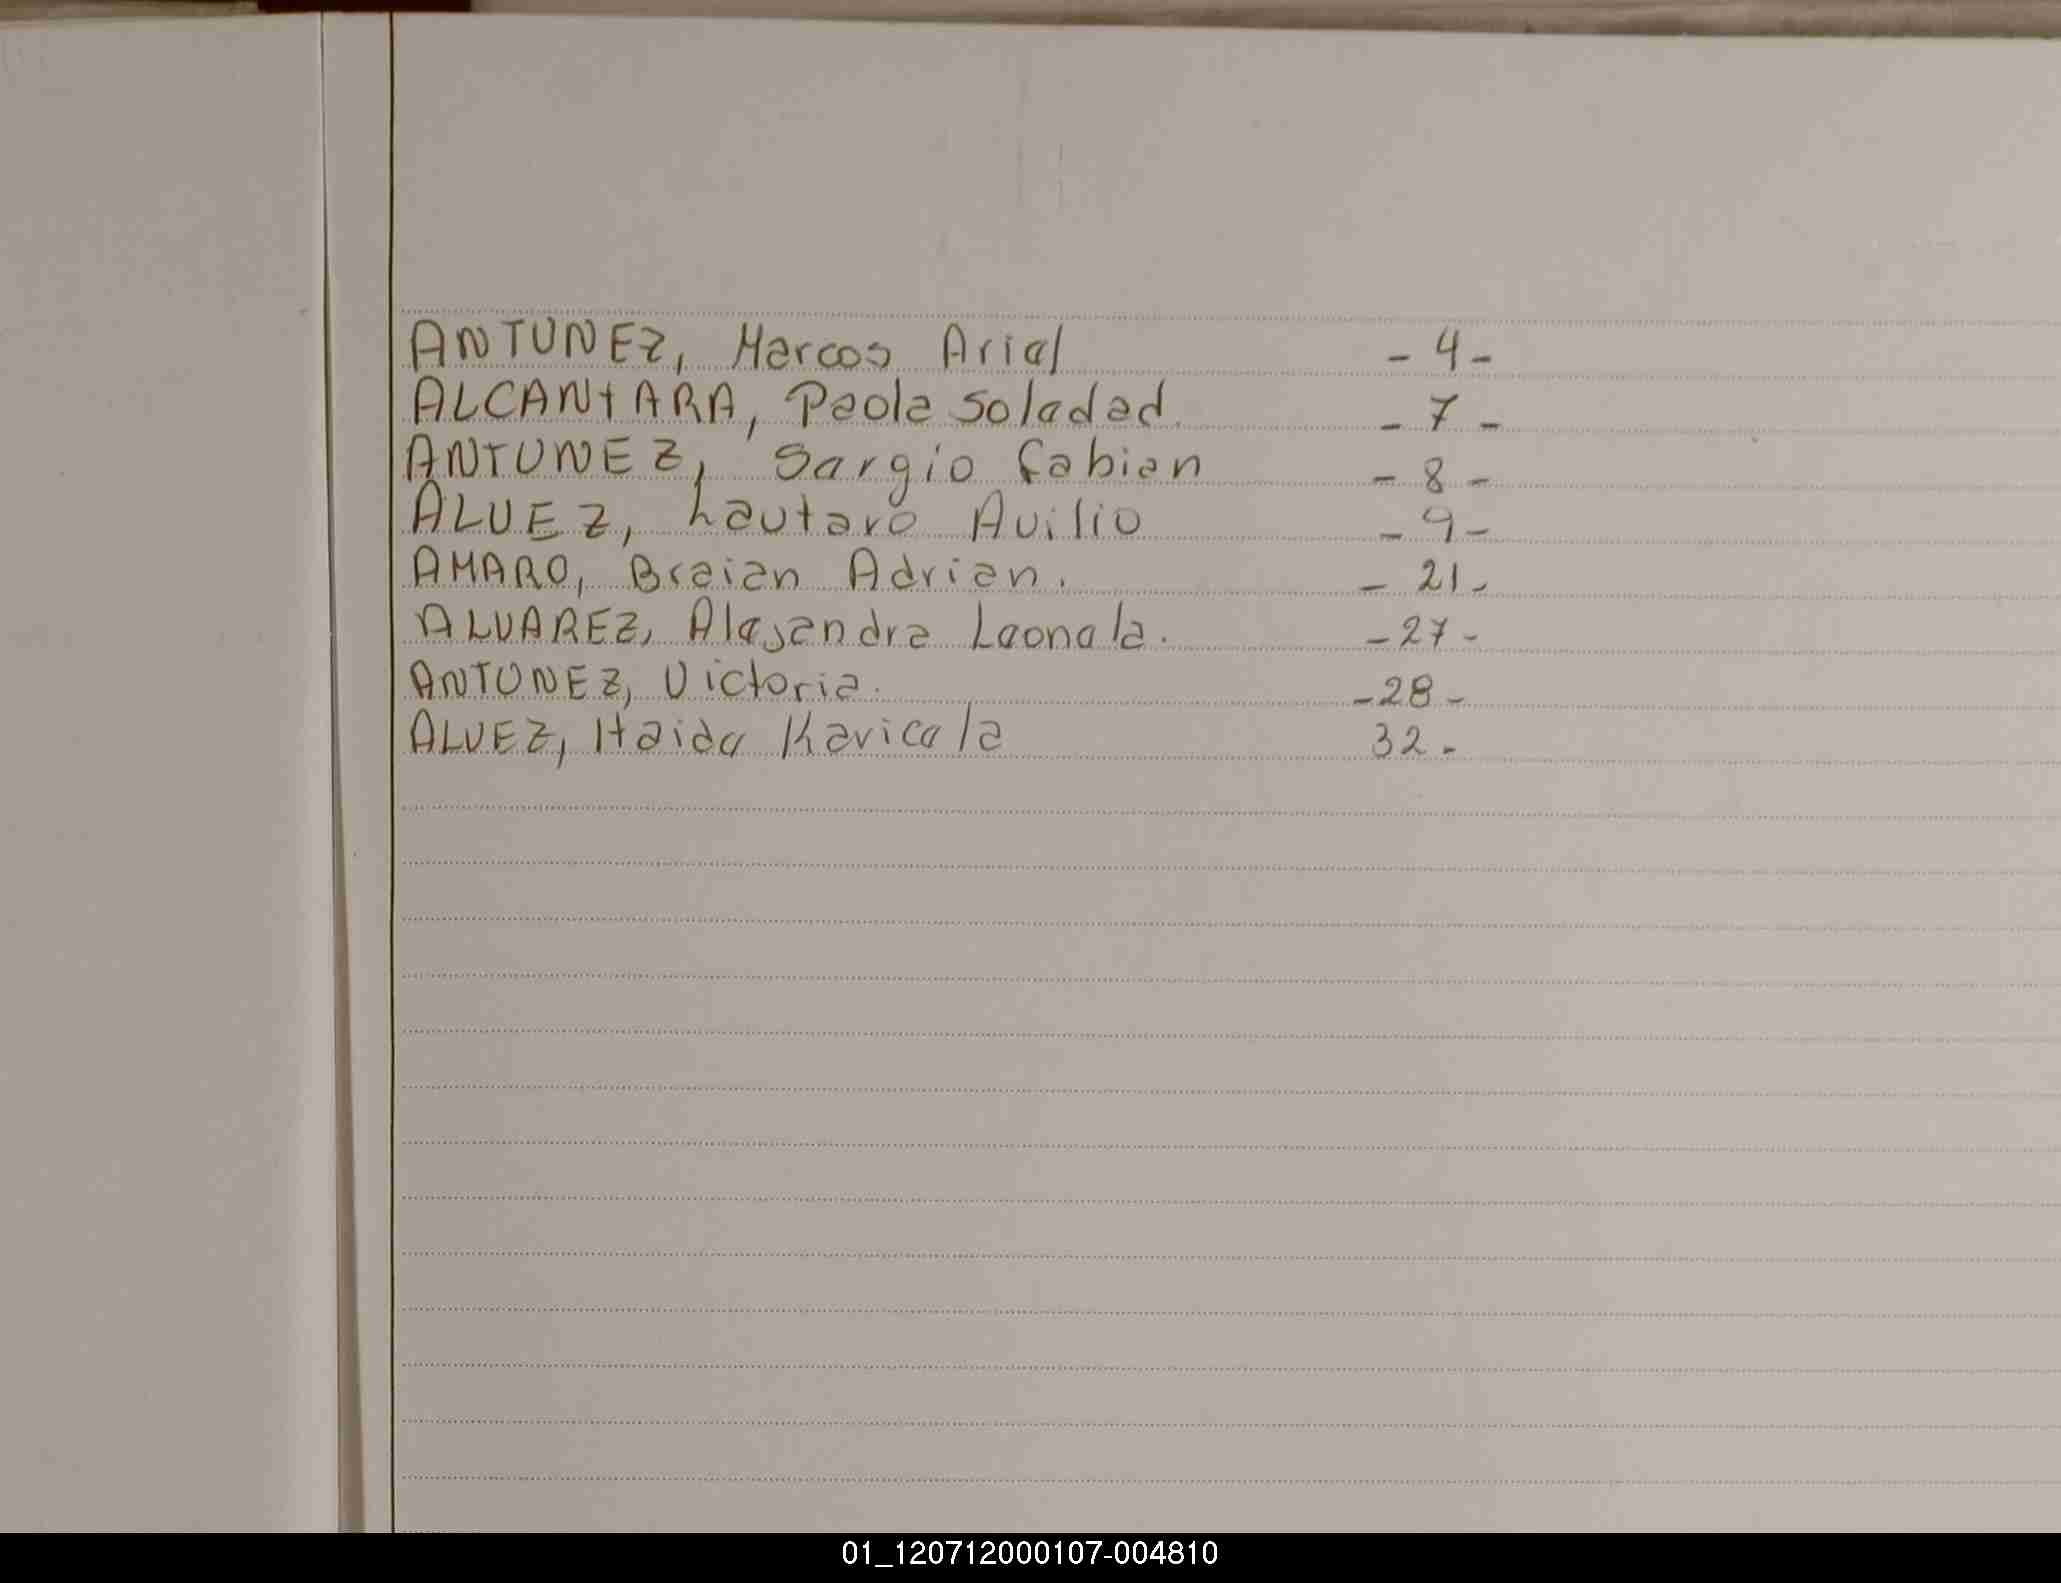 ANTUNEZ, Marcos Ariel - 4 -
ALCANTARA, Paola Soledad. - 7 -
ANTUNEZ, Sergio Fabian - 8 -
ALVEZ, Lautaro Avilio - 9 -
AMARO, Braian Adrian. - 21 -
ALVAREZ, Alejandra Leonela. - 27 -
ANTUNEZ, Victoria. - 28 -
ALVEZ, Haide Karicela 32 -
01_120712000107-004810